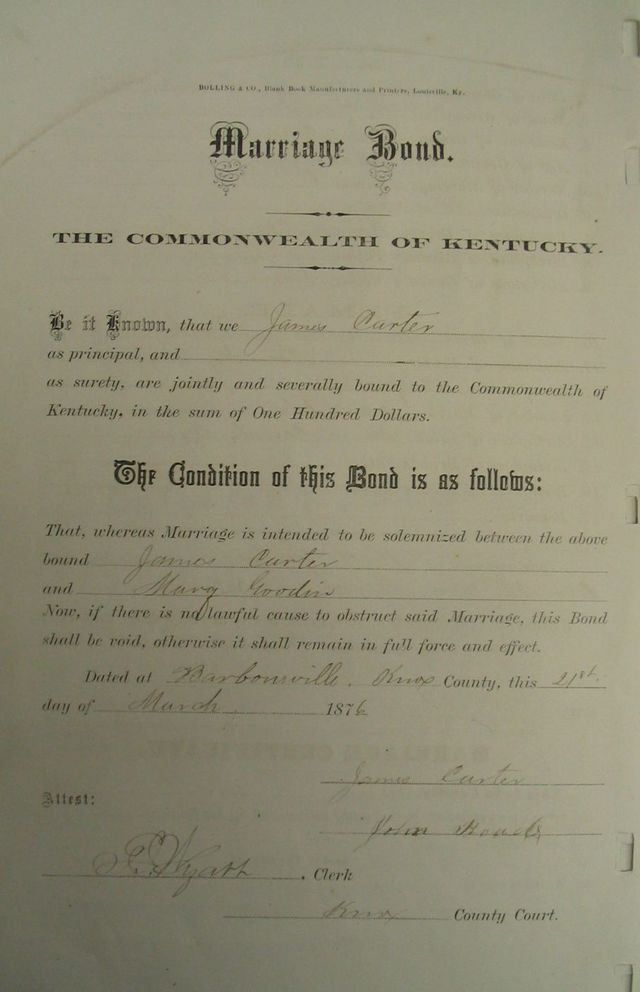 BOLLING & CO., Blank Book Manufacturers and Printers, Louisville, Ky.
Marriage Bond.
THE COMMONWEALTH OF KENTUCKY.
Be it Known, that we James Carter
as principal, and
as surety, are jointly and severally bound to the Commonwealth of
Kentucky, in the sum of One Hundred Dollars.
The Condition of this Bond is as follows:
That, whereas Marriage is intended to be solemnized between the above
bound James Carter
and Mary Goodin
Now, if there is no lawful cause to obstruct said Marriage, this Bond
shall be void, otherwise it shall remain in full force and effect.
Dated at Barbourville, Knox County, this 21st.
day of March 1876
James Carter
Attest:
John
Wyatt, Clerk
Knox County Court.